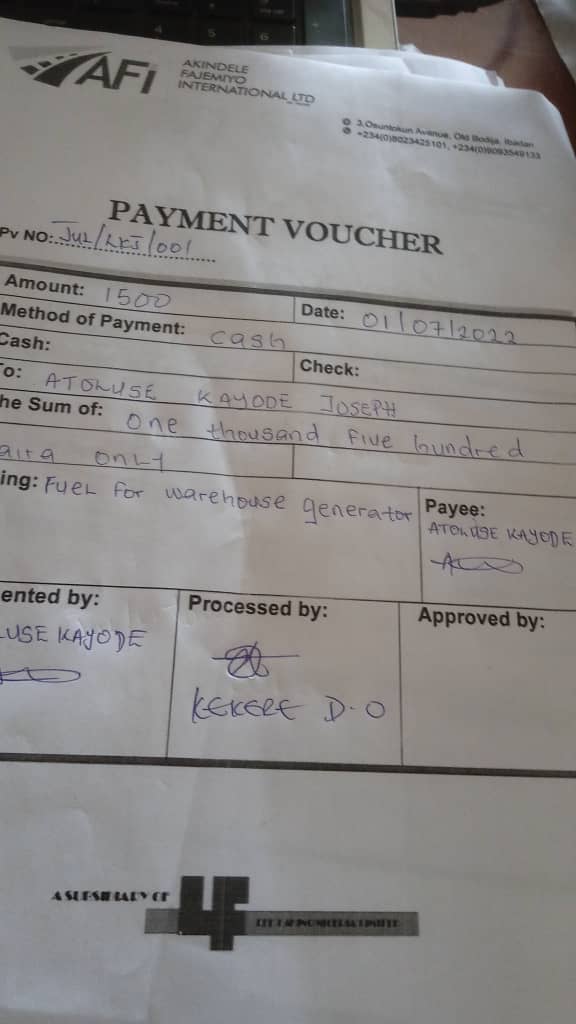 4 5 6
AFI
AKINDELE
FAJEMIYO
INTERNATIONAL LTD
3, Osuntokun Avenue, Old Bodija, Ibadan
+234(0)8023425101, +234(0)9093549133
PAYMENT VOUCHER
PV NO: JUL/LKJ/001
Amount: 1500 Date: 01/07/2022
Method of Payment: cash
Cash: Check:
To: ATOLUSE KAYODE JOSEPH
he Sum of: One thousand Five hundred
aira only
ing: FUEL for warehouse generator
Payee:
ATOLUSE KAYODE
ented by: Processed by: Approved by:
LUSE KAYODE
KEKERE D.O
A SUBSIDIARY OF